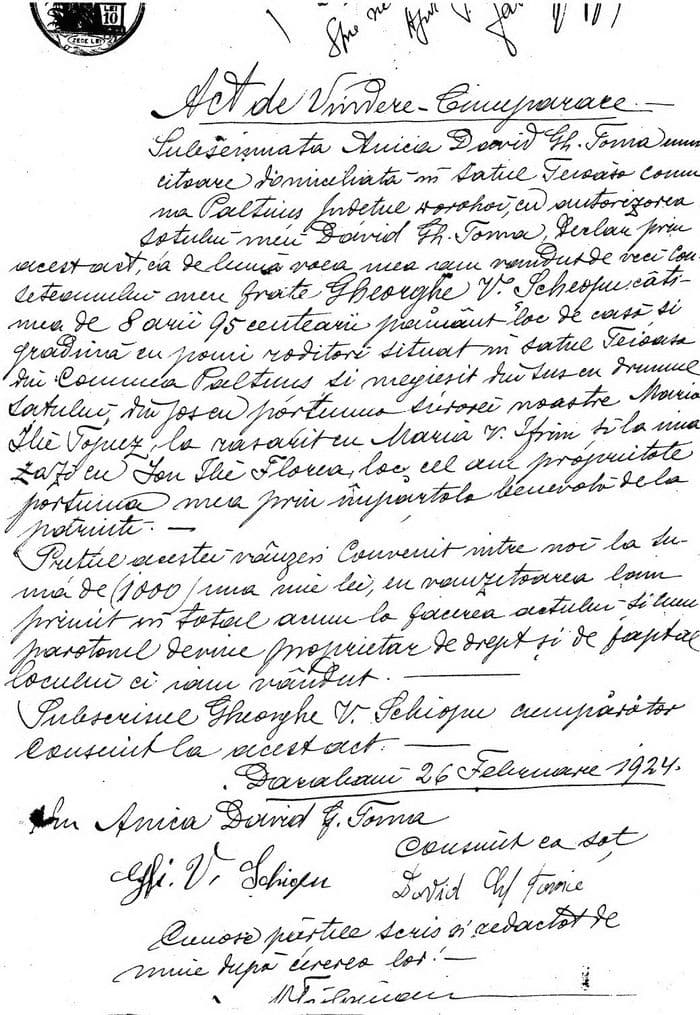 LEI
10
ZECE LEI
Spre ne
Act de Vindere-Cumparare.—
Subsemnata Anica David Gh. Toma mun
citoare domiciliata in satul Teioasa comu
na Paltinis judetul Dorohoi, cu autorizarea
sotului meu David Gh. Toma, Declar prin
acest act, că de bună voea mea iam vandut de veci con
seteanului meu frate Gheorghe V. Schiopu câti-
mea de 8 arii 95 centearii pământ loc de casă si
gradină cu pomi roditori situat in satul Teioasa
din Comuna Paltinis si megiesit din sus cu drumul
satului, din jos cu portiunea surorei noastre Maria
Ilie Topuz, la rasarit cu Maria V. Ifrim si la mia
zazi cu Ion Ilie Florea, loc cel am proprietate
portiunea mea prin împărtala benevolă de la
părinti.—
Pretul acestei vânzeri Convenit intre noi la su-
mă de (1000) una mie lei, eu vanzitoarea lam
primit in total acum la facerea actului si cum
paratorul devine proprietar de drept și de fapt al
locului ci iam vândut.—
Subscrisul Gheorghe V. Schiopu cumpărător
Consimt la acest act.—
Darabani 26 Februarie 1924.
Anica David G. Toma
Consimt ca soț
Ghi. V. Schiopu
David Gh Tomie
Cunosc părtile scris si redactat de
mine după cererea lor.—